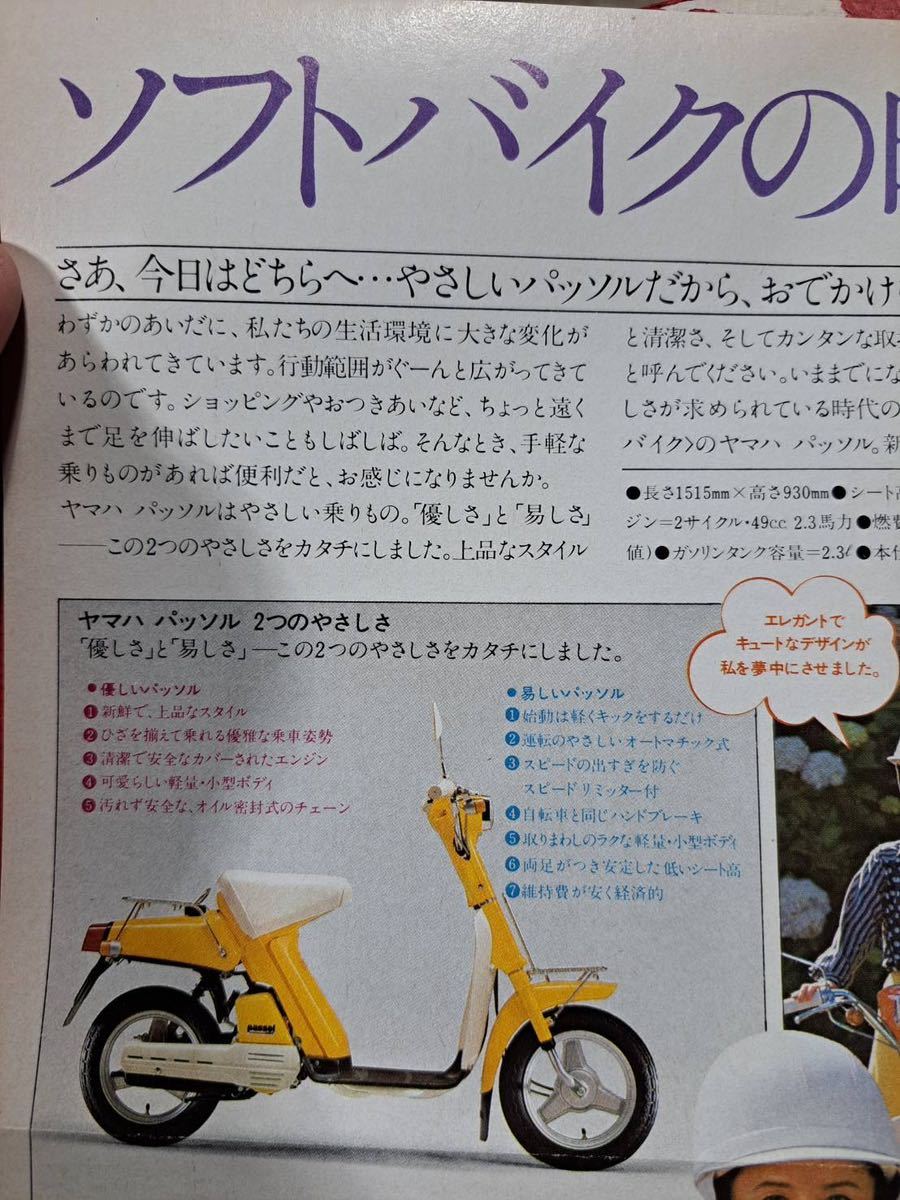 ソフトバイクの
さあ、今日はどちらへ…やさしいパッソルだから、おでかけ
わずかのあいだに、私たちの生活環境に大きな変化が
あらわれてきています。行動範囲がぐーんと広がってきて
いるのです。ショッピングやおつきあいなど、ちょっと遠く
まで足を伸ばしたいこともしばしば。そんなとき、手軽な
乗りものがあれば便利だと、お感じになりませんか。
ヤマハ パッソルはやさしい乗りもの。「優しさ」と「易しさ」
——この2つのやさしさをカタチにしました。上品なスタイル
と清潔さ、そしてカンタンな取
と呼んでください。いままでにな
しさが求められている時代の
バイク〉のヤマハ パッソル。新
●長さ1515mm×高さ930mm●シート高
ジン=2サイクル・49cc 2.3馬力●燃費
値)●ガソリンタンク容量=2.3ℓ●本仕
ヤマハ パッソル 2つのやさしさ
「優しさ」と「易しさ」—この2つのやさしさをカタチにしました。
●優しいパッソル
❶新鮮で、上品なスタイル
❷ひざを揃えて乗れる優雅な乗車姿勢
❸清潔で安全なカバーされたエンジン
❹可愛らしい軽量・小型ボディ
❺汚れず安全な、オイル密封式のチェーン
●易しいパッソル
❶始動は軽くキックをするだけ
❷運転のやさしいオートマチック式
❸スピードの出すぎを防ぐ
スピードリミッター付
❹自転車と同じハンドブレーキ
❺取りまわしのラクな軽量・小型ボディ
❻両足がつき安定した低いシート高
❼維持費が安く経済的
エレガントで
キュートなデザインが
私を夢中にさせました。
passol